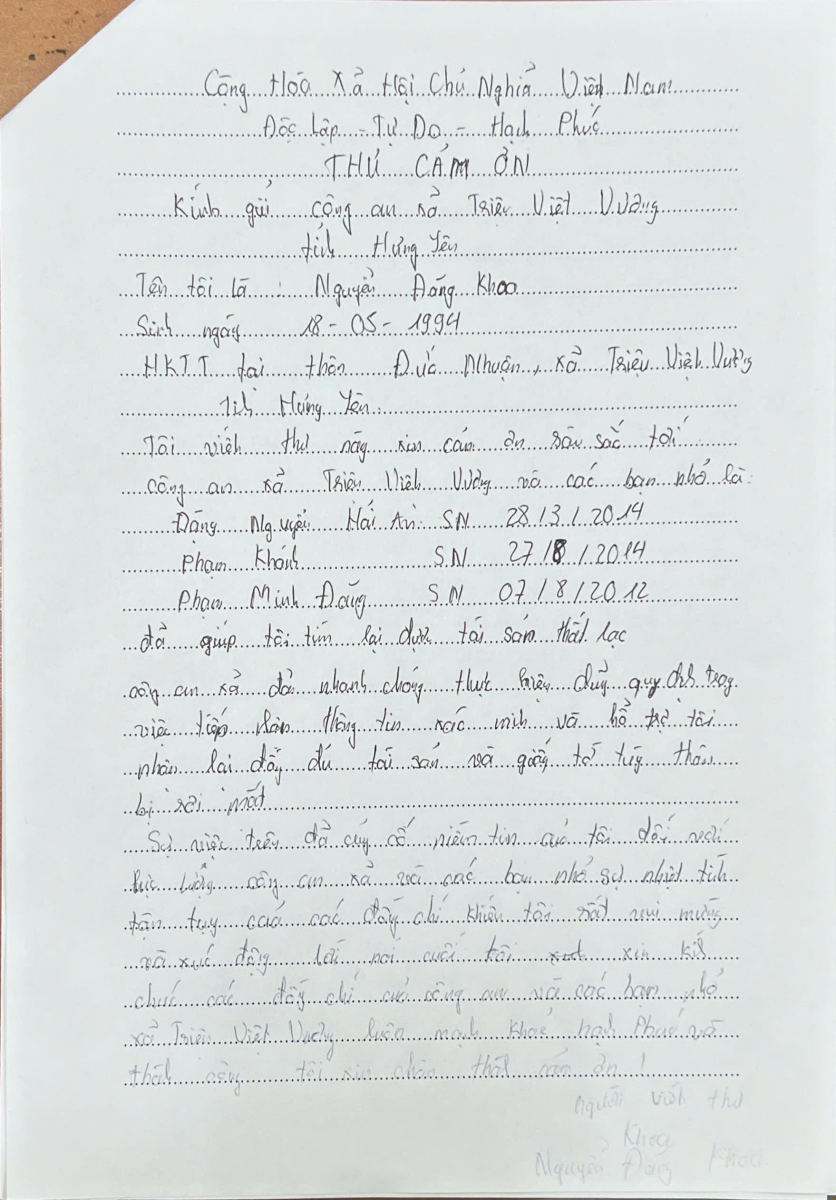 Cộng Hóa Xả Hội Chủ Nghiả Việt Nam
Độc Lập - Tự Do - Hạnh Phúc
THƯ CẢM ƠN
Kính gửi công an xả Triệu Việt Vương
tỉnh Hưng Yên
Tên tôi là : Nguyễn Đăng Khoa
Sinh ngáy 18 - 05 - 1994
HKTT tại thôn Đức Nhuận, xả Triệu Việt Vương
Tỉnh Hưng Yên
Tôi viết thư này xin cám ơn sâu sắc tới
công an xả Triệu Việt Vương và các bạn nhỏ là:
Đặng Nguyễn Hải An SN 28/3/2014
Phạm Khánh SN 27/8/2014
Phạm Minh Đăng SN 07/8/2012
đả giúp tôi tìm lại được tái sản thất lạc
công an xả đả nhanh chóng thực hiện đung quy định trong
việc tiếp nhận thông tin xác minh và hổ trợ tôi
nhận lại đầy đủ tái sản và giấy tờ tùy thân
bị rơi mất
Sự việc trên đả củng cố niềm tin của tôi đối với
lực lượng công an xả và các bạn nhỏ sự nhiệt tình
tận tụy của các đồng chí khiến tôi rất vui mừng
và xúc động lời nói cuối tôi xin kính
chúc các đồng chí của công an và các bạn nhỏ
xả Triệu Việt Vương luôn mạnh khoẻ hạnh Phúc và
thành công tôi xin chân thành cám ơn !
người viết thư
Khoa
Nguyễn Đăng Khoa